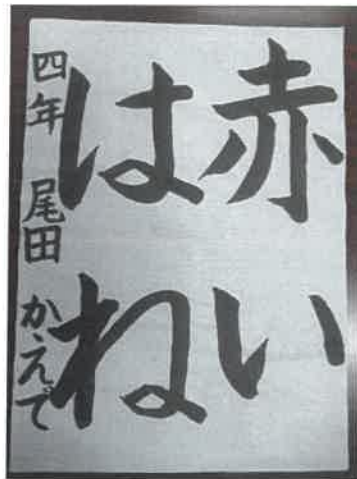 赤い
はね
四年 尾田 かえで